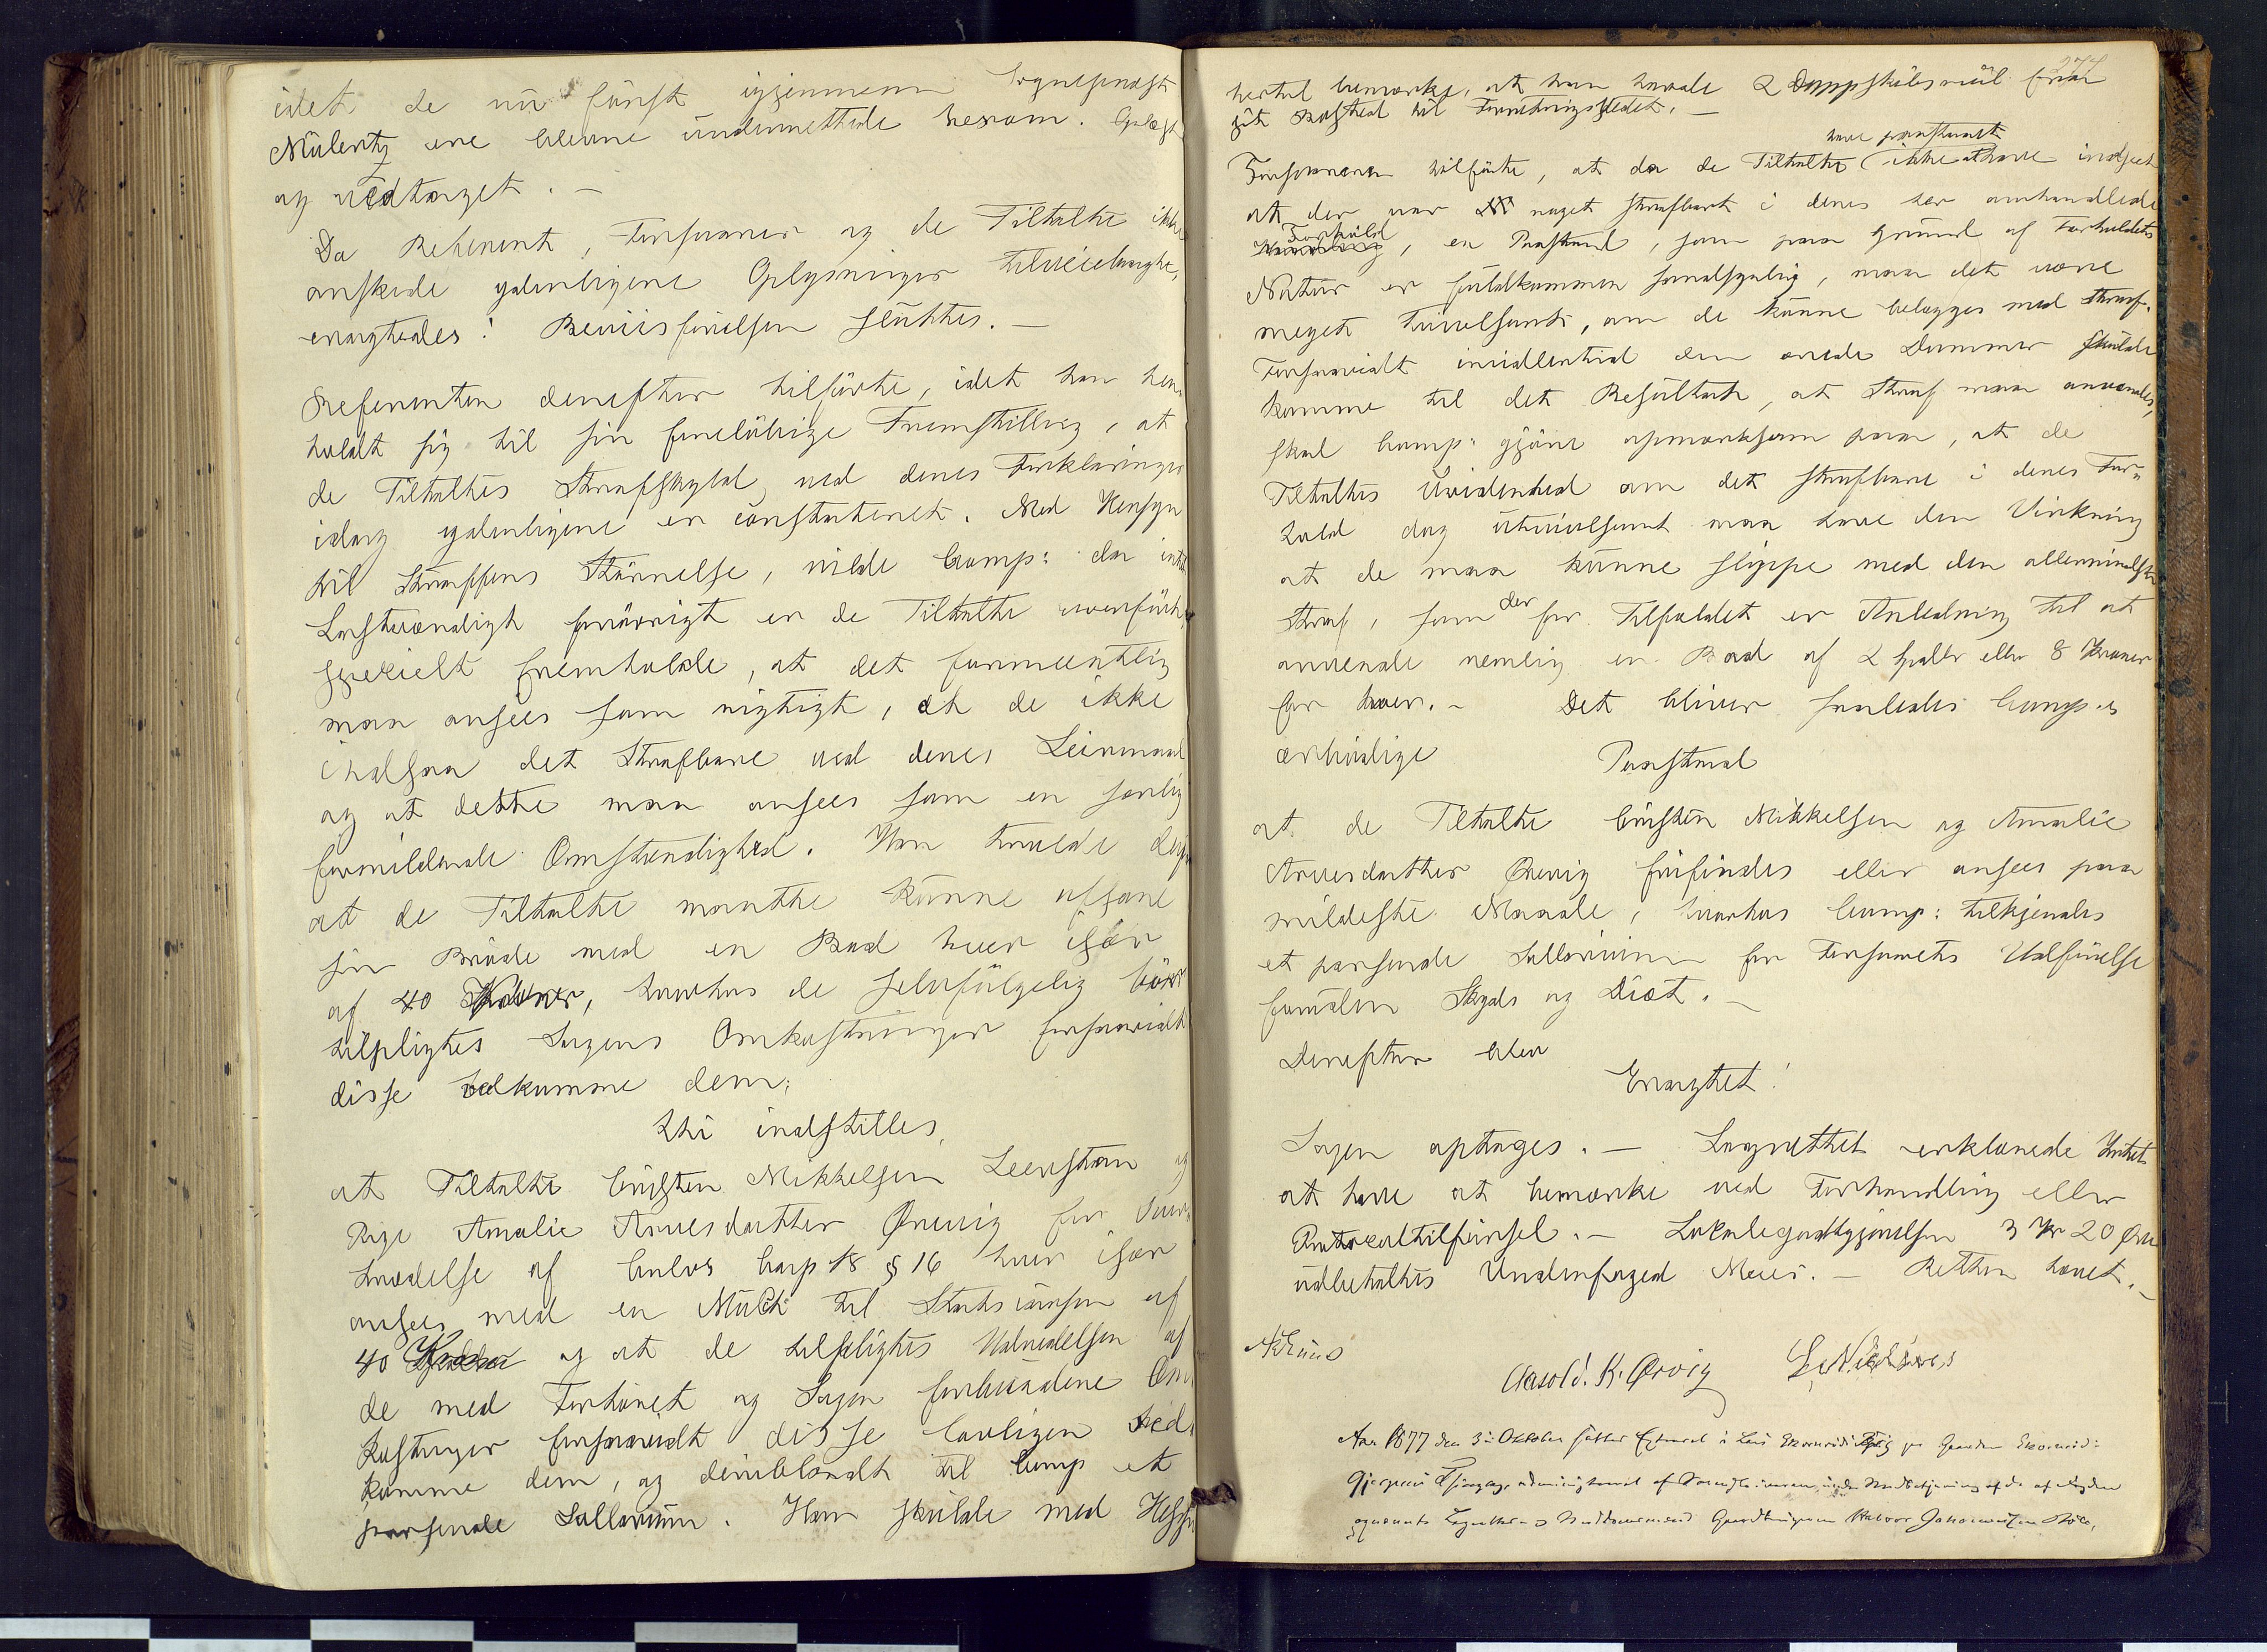 idet de nu först igjennem Sognepræst
Mülertz ere blevne underrettede herom. Oplæst
og vedtaget. —
Da Referent, Forsvarer og de Tiltalte ikke
önskede yderligere Oplysninger tilveiebragte,
eragtedes: Beviisförelsen sluttes. —
Referenten derefter tilförte, idet han hen-
holdt sig til sin foreløbige Fremstilling, at
de Tiltaltes Strafskyld ved deres Forklaringer
idag yderligere er constateret. Med Hensyn
til Straffens Störrelse, vilde Comp: da intet
Lastværdigt forövrigt er de Tiltalte overfört,
specielt fremholde, at det formeentlig
maa ansees som rigtigt, at de ikke
indsaa det Strafbare ved deres Leiermaal
og at dette maa ansees som en særlig
formildende Omstændighed. Han troede derfor
at de Tiltalte maatte kunne afsone
sin Bröde med en Bod hver især
af 40 Kroner, hvorhos de selvfölgelig bör
tilpligtes Sagens Omkostninger forsaavidt
disse vedkomme dem;
thi indstilles,
at Tiltalte Cristen Mikkelsen Leerstøen og
Pige Amalie Arnesdatter Ørevig for Over-
trædelse af Crlvs Cap 18 § 16 hver især
ansees med en Mulct til Statscassen af
40 Kroner og at de tilpligtes Udredelsen af
de med Forhöret og Sagen forbundene Om-
kostninger forsaavidt disse lovligen ved-
komme dem, og deriblandt til Comp et
passende Sallarium. Han skulde med Hensyn
274
hertil bemærke, at han havde 2 Dampskibsmiil fra
sit Bosted til Forretningsstedet. —
have paastaaet
Forsvareren tilförte, at da de Tiltalte ikke at have indseet
at der var noget strafbart i deres her omhandlede
Forhold
, en Paastand, som paa Grund af Forholdets
Natur er fuldkommen sandsynlig, maa det være
meget tvivlsomt, om de kunne belægges med Straf.
Forsaavidt imidlertid den ærede Dommer skulde
komme til det Resultat, at Straf maa anvendes,
skal Comp: gjöre opmærksom paa, at de
Tiltaltes Uvidenhed om det strafbare i deres For-
hold dog utvivlsomt maa have den Virkning
at de maa kunne slippe med den allermindste
Straf, som der for Tilfældet er Anledning til at
anvende nemlig en Bod af 2 Spdlr eller 8 Kroner
for hver. – Det bliver saaledes Comp.s
ærbödige
Paastand
at de Tiltalte Cristen Mikkelsen og Amalie
Arnesdatter Ørevig frifindes eller ansees paa
mildeste Maade, hvorhos Comp: tilkjendes
et passende Sallarium for Forsvarets Udförelse
foruden Skyds og Diæt. —
Derefter blev
Eragtet:
Sagen optages. — Lagrettet erklærede Intet
at have at bemærke ved Forhandling eller
Protocoltilförsel. — Lokalegodtgjörelsen 3 Kr 20 Øre
udbetaltes Underfoged Moe. — Retten hævet. —
Aasold. K. Ørvig
Aar 1877 den 3die Oktober sattes Extraret i